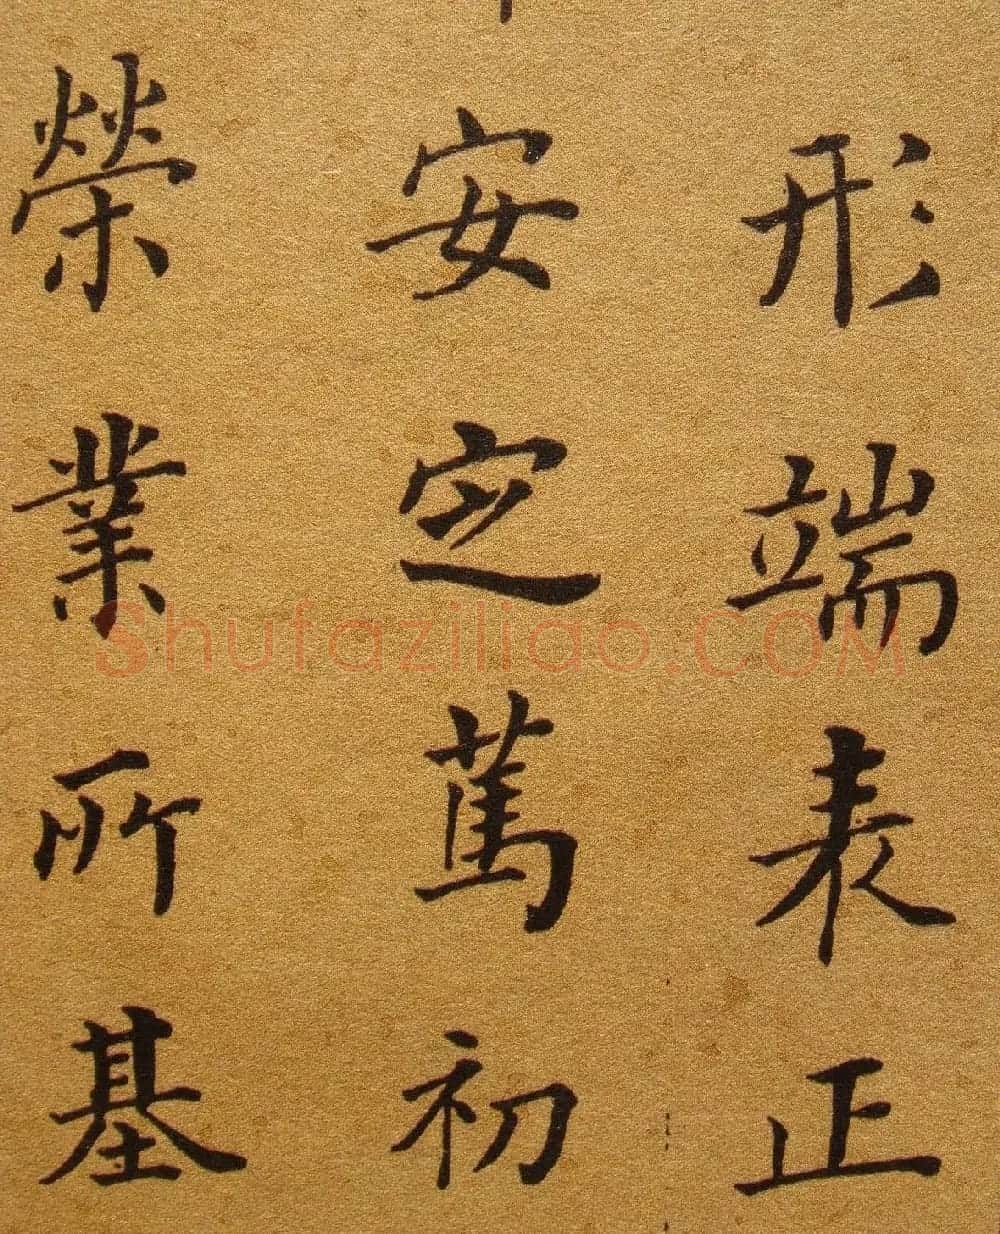 形端表正
安定篤初
榮業所基
Shufaziliao.COM